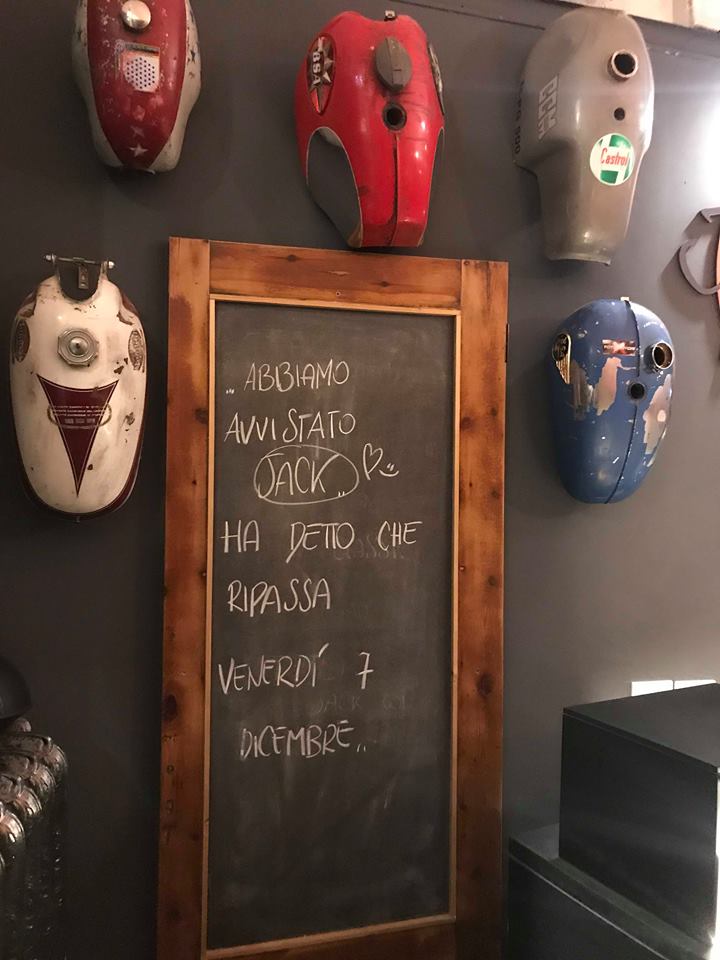 BSA
CCM
Castrol
..ABBIAMO
AVVISTATO
JACK..
HA DETTO CHE
RIPASSA
VENERDÍ 7
DICEMBRE..